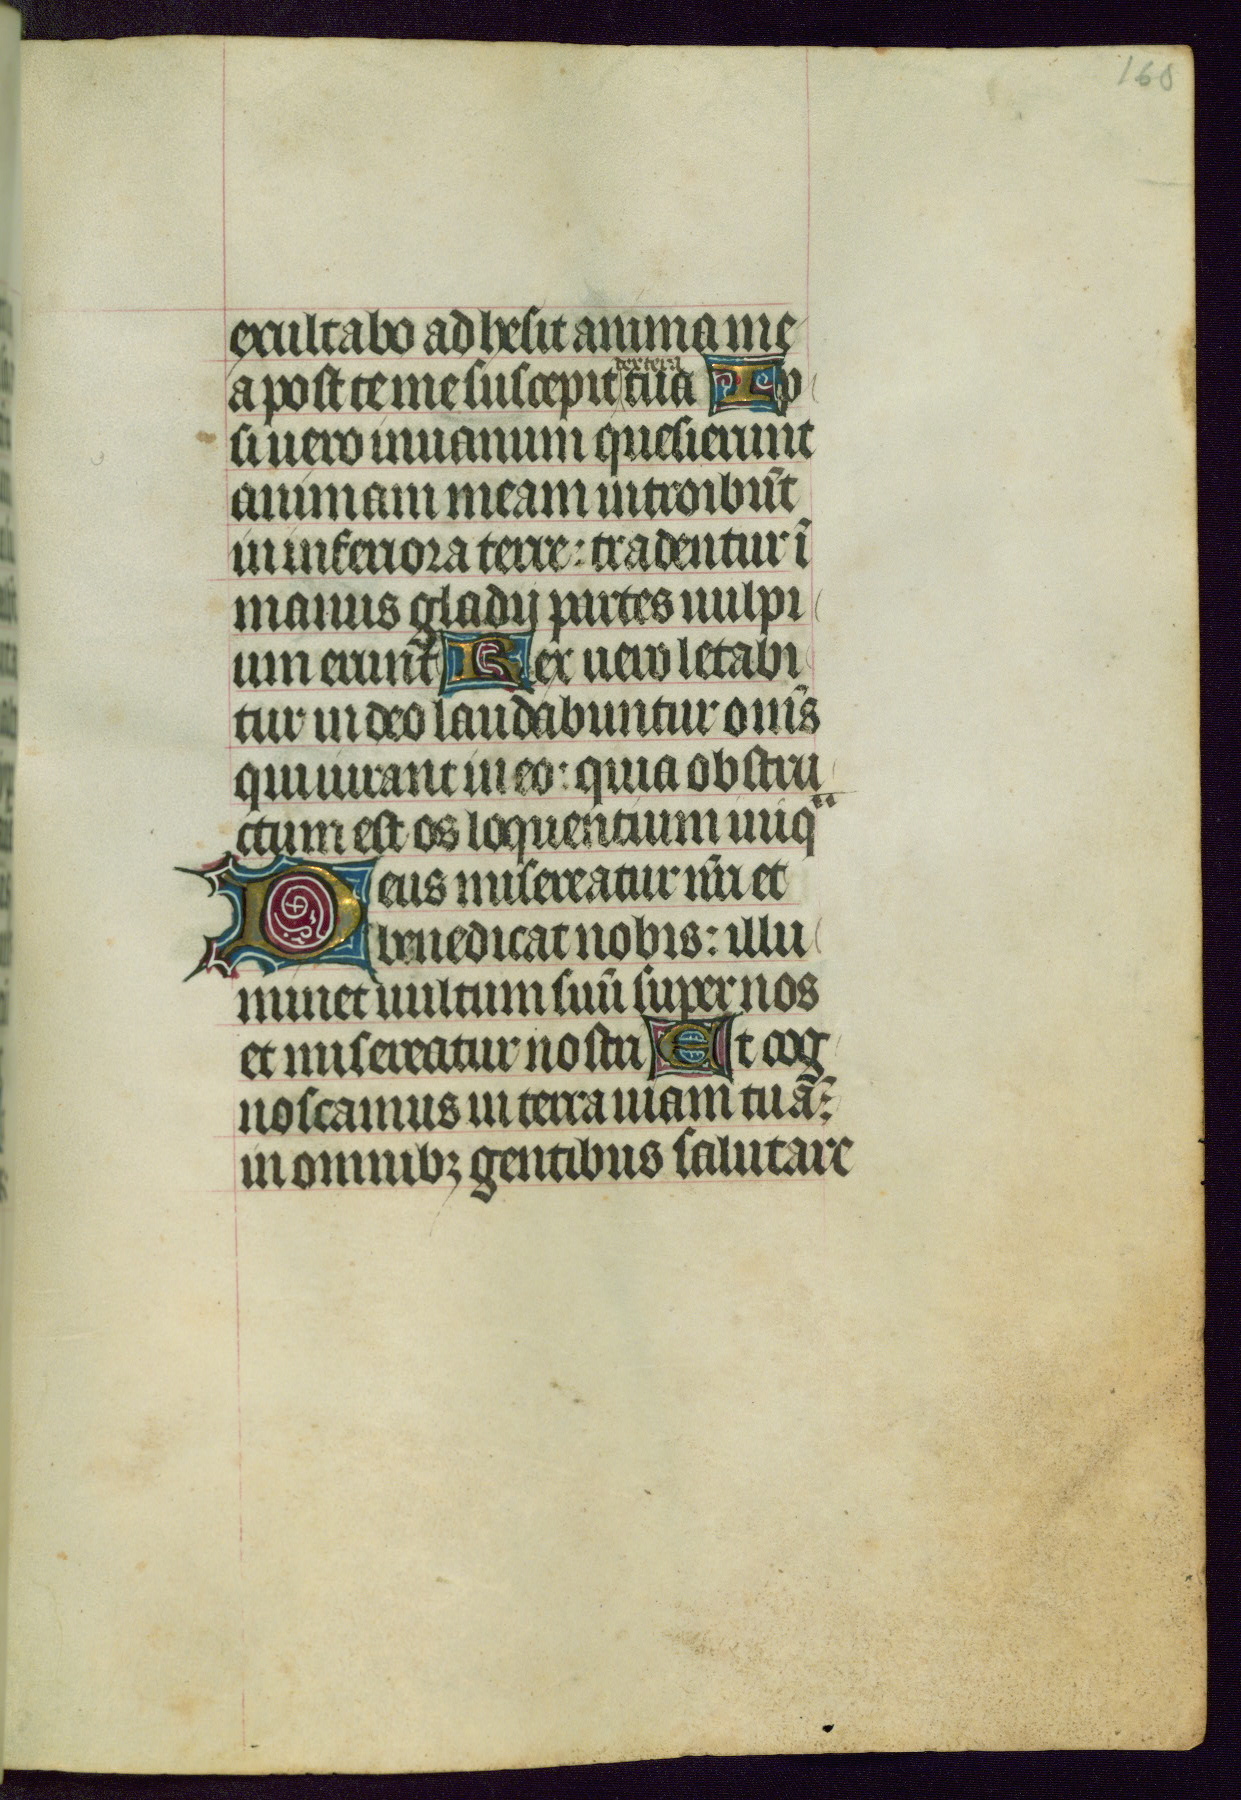 168
exultabo adhesit anima me
a post te me suscepit dextera tua Ip
si uero in uanum quesierunt
animam meam introibūt
in inferiora terre: tradentur ī
manus gladij partes uulpi
um erunt Rex uero letabi
tur in deo laudabuntur om̄s
qui iurant in eo: quia obstru
ctum est os loquentium iniq
Deus misereatur nr̄i et
benedicat nobis: illu
minet uultum suū super nos
et misereatur nostri Et cog
noscamus in terra uiam tuā:
in omnibꝫ gentibus salutare